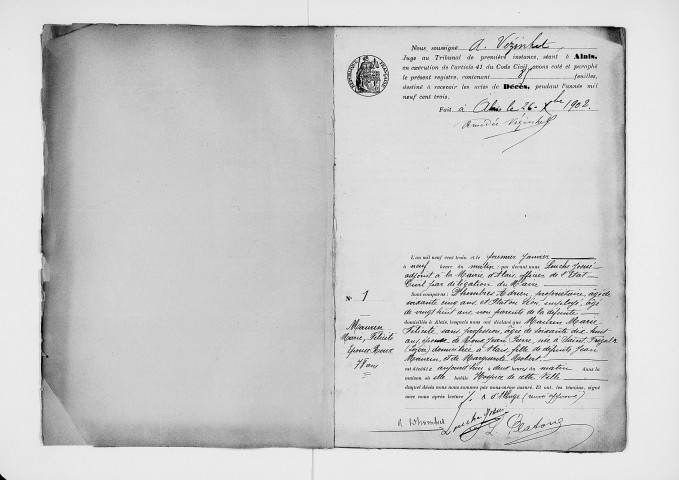 Nous, soussigné A. Vézinhet
Juge au Tribunal de première instance, séant à Alais,
en exécution de l'article 41 du Code Civil, avons coté et paraphé
le présent registre, contenant feuilles,
destiné à recevoir les actes de Décès, pendant l'année mil
neuf cent trois.
Fait à Alais le 26 Xbre 1902.
Amédée Vézinhet
L'an mil neuf cent trois et le premier Janvier
à neuf heures du matin par devant nous Louche Josué
adjoint à la Mairie d'Alais, officier de l'Etat
Civil par délégation du Maire
Sont comparus: Adrien, propriétaire, âgé de
soixante cinq ans, et Léon, employé, âgé
de vingt huit ans, non parents de la défunte
domiciliés à Alais, lesquels nous ont déclaré que Maurin Marie
Félicité, sans profession, âgée de soixante dix huit
ans, épouse de Roux Jean Pierre, née à Saint Frézal
(Lozère) domiciliée à Alais, fille de défunts Jean
Maurin, et de Marguerite
est décédée aujourd'hui à deux heures du matin dans la
maison où elle habite Hospice de cette Ville
duquel décès nous nous sommes par nous-même assuré. Et ont, les témoins, signé
avec nous après lecture
N° 1
Maurin
Marie, Félicité
épouse Roux
78 ans